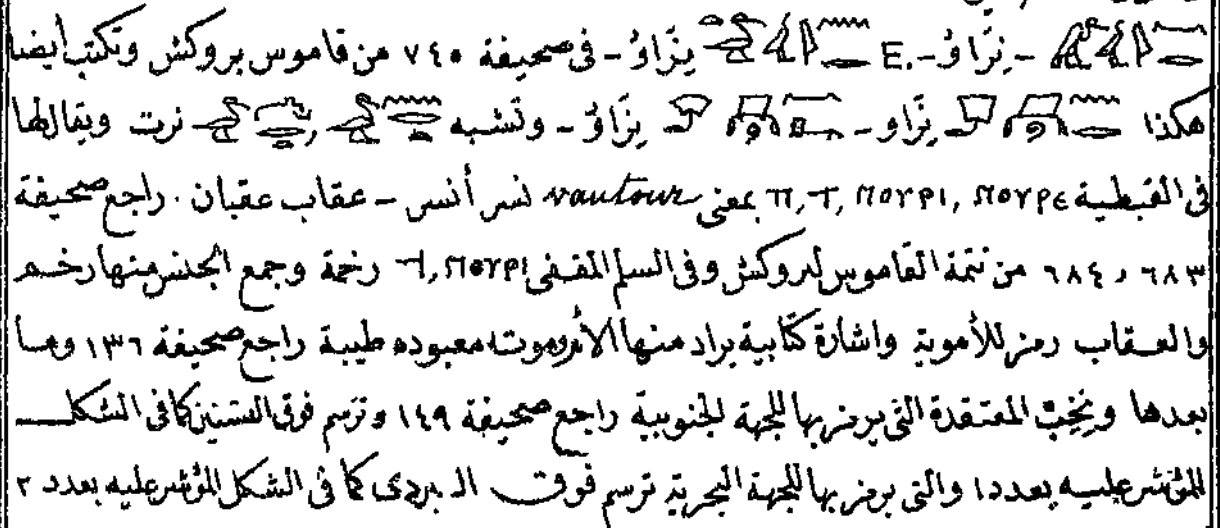 - نِرَّاوُ - E. - نِرَّاوُ - فى صحيفة ٧٤٠ من قاموس بروكش وتكتب أيضا
هكذا نِرَّاو - نِرَّاوُ - وتشبه , نرت ويقال لها
فى القبطية ⲡ, ⲧ, ⲛⲟⲩⲣⲓ, ⲛⲟⲩⲣⲉ بمعنى vautour نسر أنسر - عقاب عقبان . راجع صحيفة
٦٨٣ و ٦٨٤ من تتمة القاموس لبروكش وفى السلم المقفى ϯ, ⲛⲟⲩⲣⲓ رخمة وجمع الجنس منها رخم
والعقاب رمز للأموية واشارة كتابية يراد منها الأم وموت معبوده طيبة راجع صحيفة ١٣٦ وما
بعدها ونِخِبْ المعتقدة التى يرمز بها للجهة الجنوبية راجع صحيفة ١٤٩ وترسم فوق كما فى الشكل
المؤشر عليه بعدد ١ والتى يرمز بها للجهة البحرية ترسم فوق البردى كما فى الشكل المؤشر عليه بعدد ٢